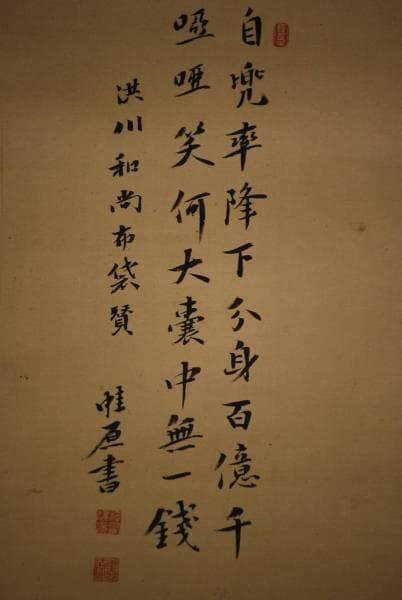 自兜率降下分身百億千
啞啞笑何大囊中無一錢
洪川和尚布袋賛
惟原書